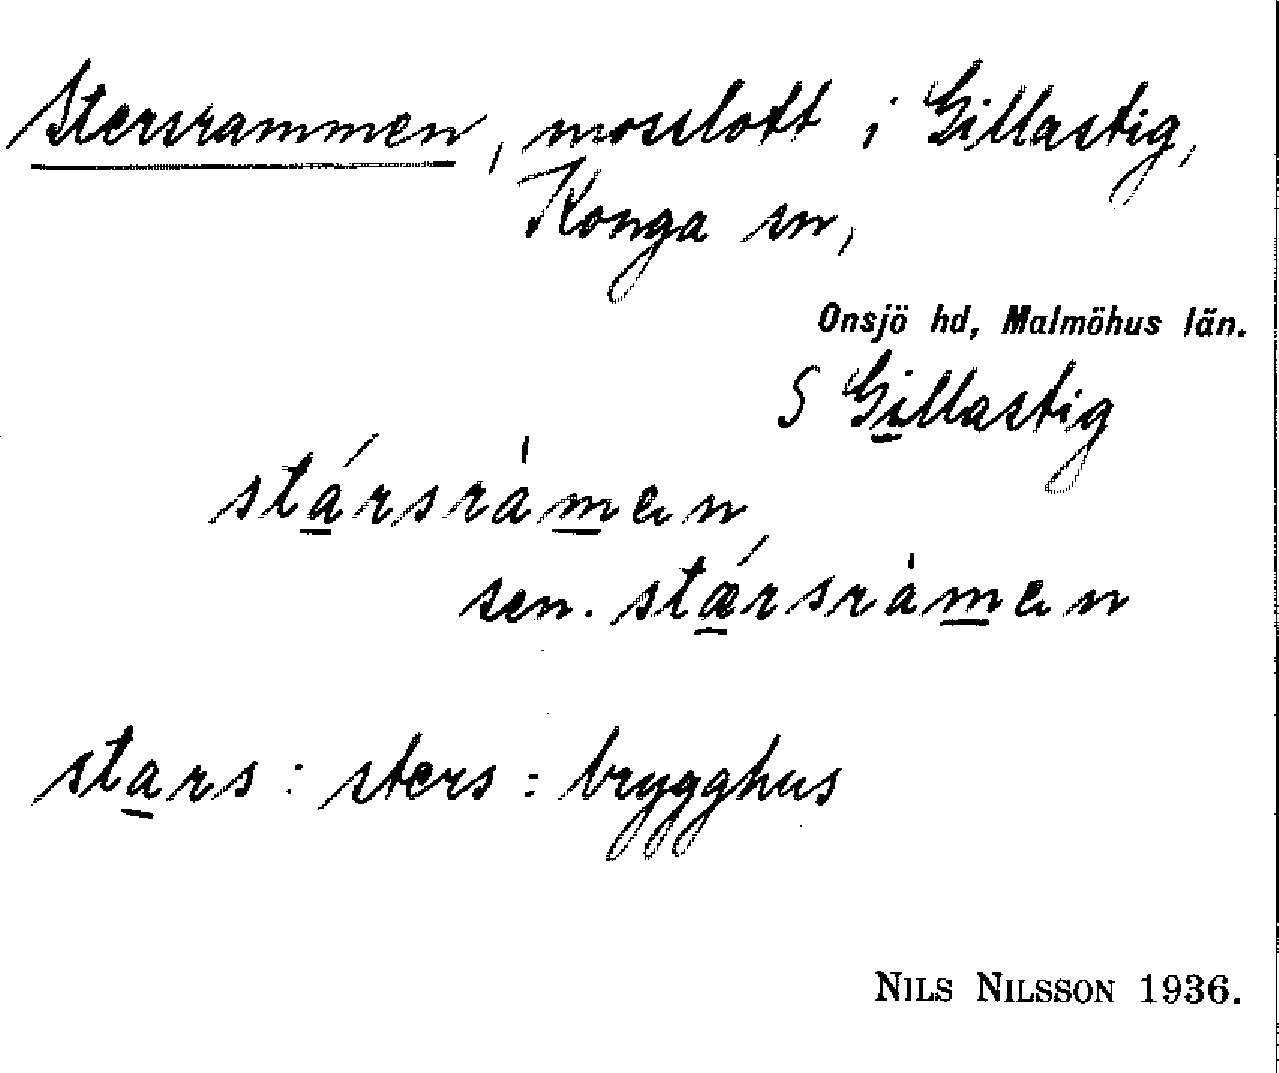 Stersrammen, mosslott i Gillastig,
Konga sn,
Onsjö hd, Malmöhus län.
S Gillastig
stársràmen
sen. stǽrsràmen
stars : sters : brygghus
NILS NILSSON 1936.